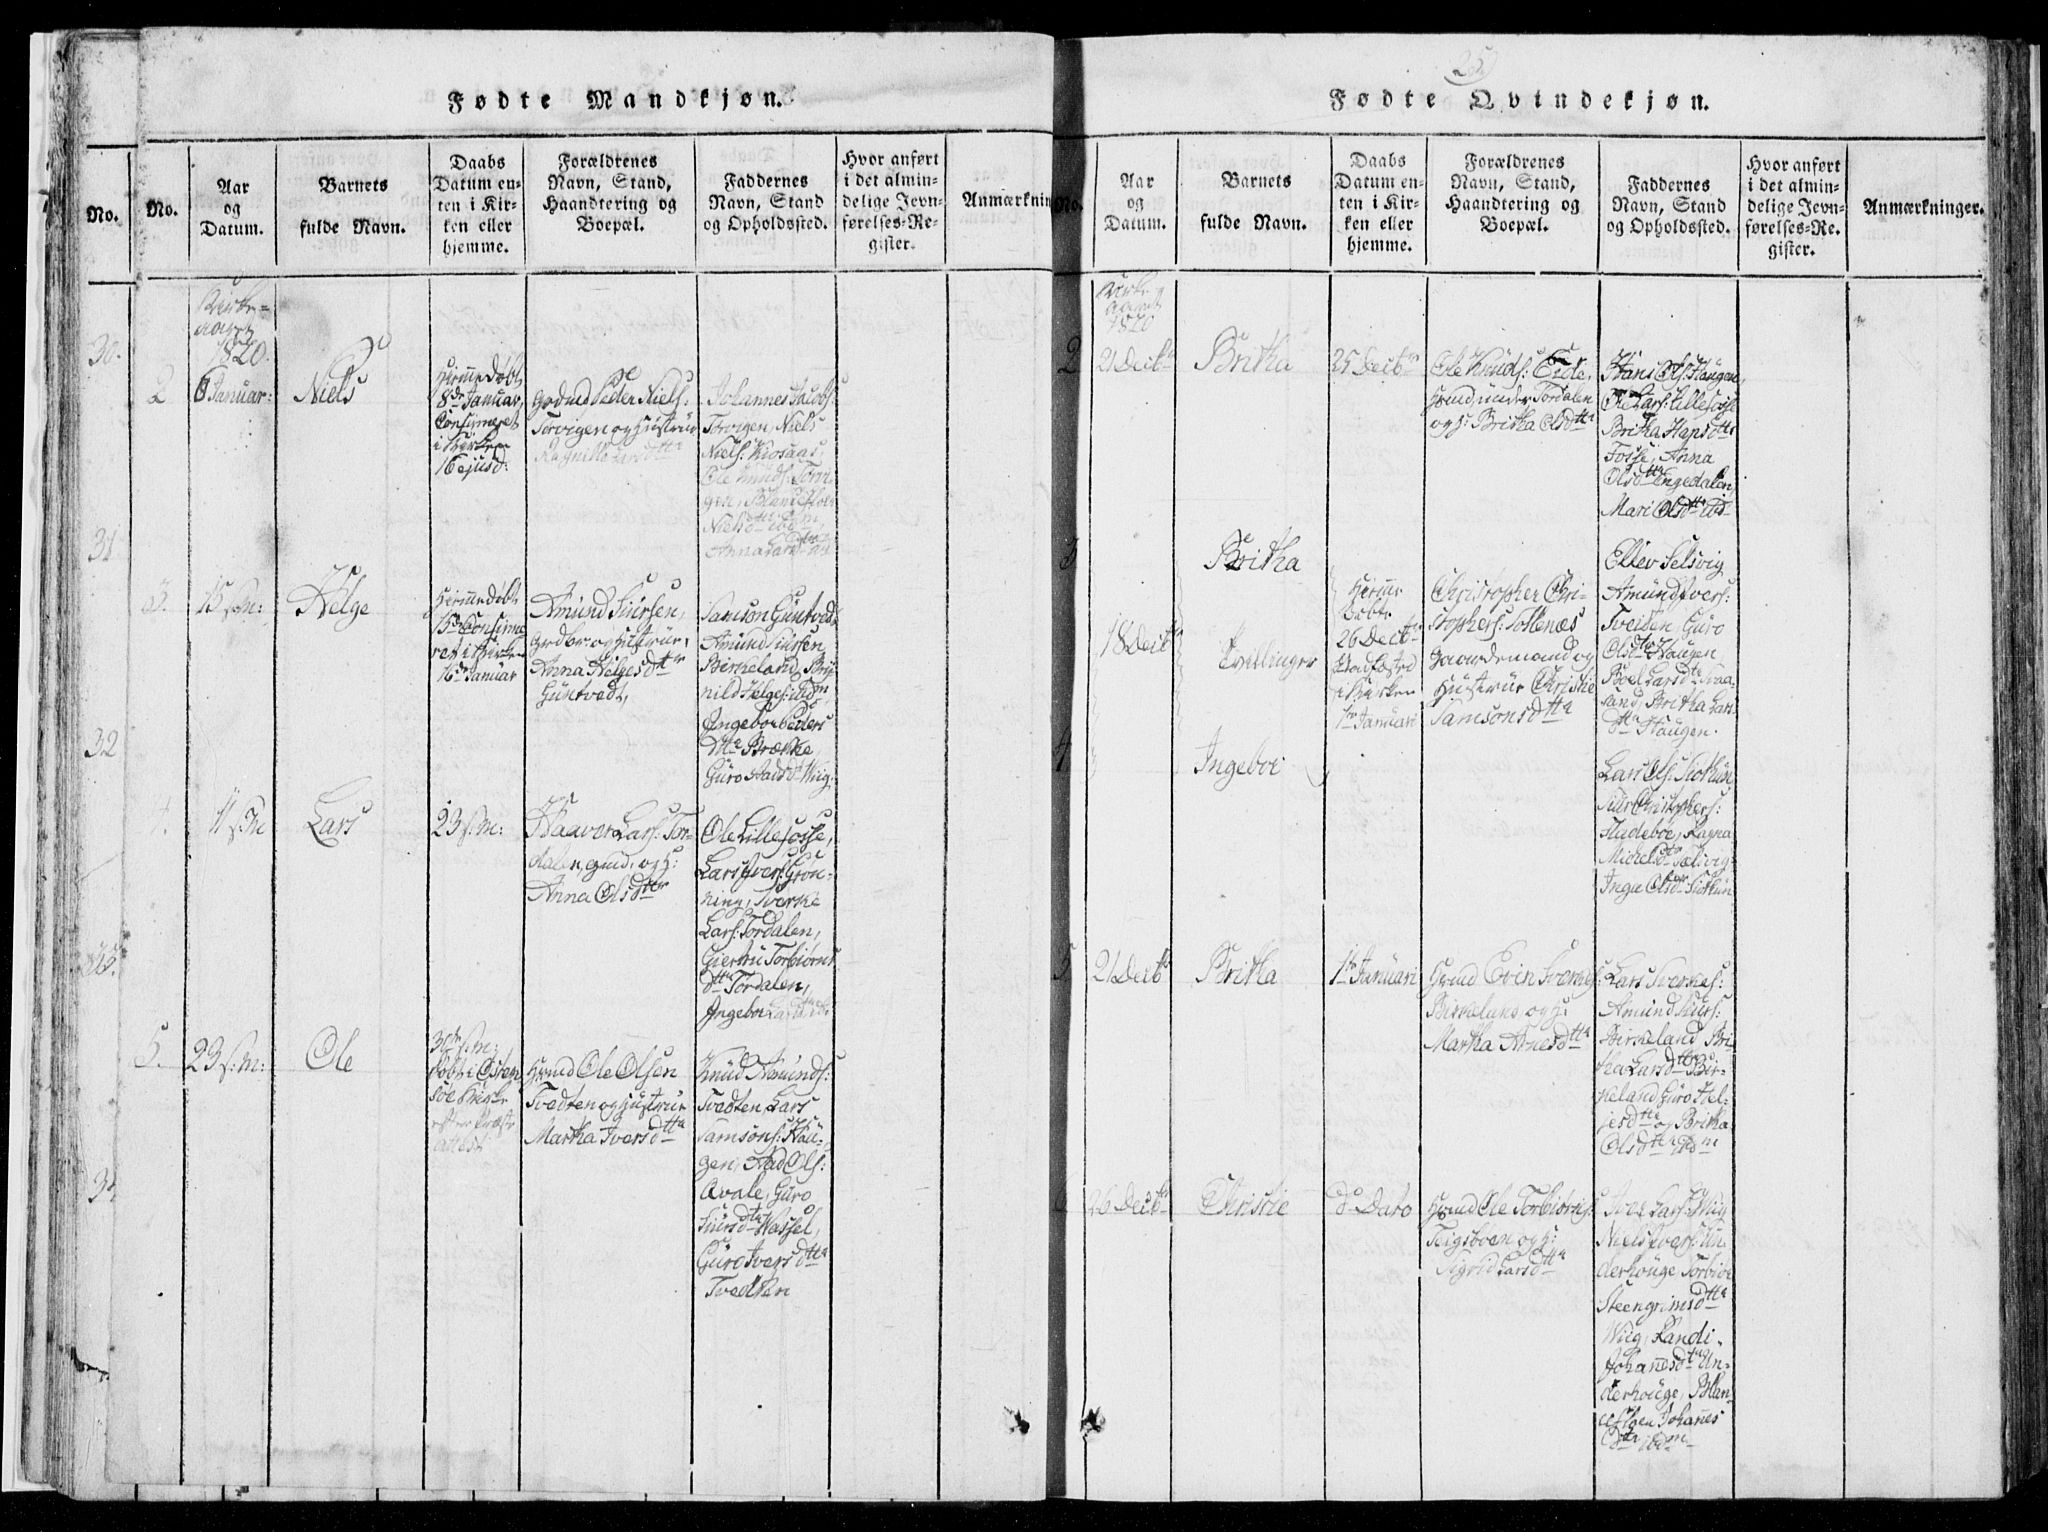 Fødte Mandkjøn.
No.
No.
Aar
og
Datum.
Barnets
fulde Navn.
Daabs
Datum en-
ten i Kir-
ken eller
hjemme.
Forældrenes
Navn, Stand,
Haandtering og
Boepæl.
Faddernes
Navn, Stand
og Opholdssted.
Hvor anført
i det almin-
delige Jevn-
førelses-Re-
gister.
Anmærkning
30.
31
32
Kirke-
aaret
1820.
2
6 Januar:
Niels
Hiemmedøbt
8de Januar,
Confirmeret
i Kirken
16 ejusd:
Grdmd Peder Niels:
Torvigen og Hustrue
Johannes Jacobs:
Torvigen, Niels
Niels: Kiosaas,
Ole Knuds: Torvi-
gen,
Nielsdtr ibdm,
Anna Larsdtr
3.
15 s.M:
Helge
Hiemmedøbt
15de Confirme-
ret i Kirken
16de Januar
Amund Siursen,
Grdbr. og Hustrue
Anna Helgesdttr
Guntvedt,
Samson Guntvedt,
Amund Siursen
Birkeland, Bry-
nild Helges: ibdm,
Ingebor Peders
dttr Brække
Guro Aadsd Wiig.
4.
11 s.M
Lars
23 s.M:
Haaver Lars: Tor-
dalen, gmd, og H:
Anna Olsdttr
Ole Lillefosse,
Lars Ivers: Grøn-
ning, Sverke
Lars: Tordalen,
Giertru Torbiørns
dttr Tordalen,
Ingebor Larsdttr
5.
23 s.M:
Ole
30de s.M:
døbt i Østen
søe Kirke
efter Præste
attest
Hmd Ole Olsen
Tvedten og Hustrue
Martha Iversdttr
Knud Amunds:
Tvedten, Lars
Samsons: Hau-
gen, Aad Ols:
Avale, Guro
Siursdtr Wassel,
Guro Iversdttr
Tvedten
25
Fødte Qvindekjøn.
No.
Aar
og
Datum.
Barnets
fulde Navn.
Daabs
Datum en-
ten i Kir-
ken eller
hjemme.
Forældrenes
Navn, Stand,
Haandtering og
Boepæl.
Faddernes
Navn, Stand
og Opholdssted.
Hvor anført
i det almin-
delige Jevn-
førelses-Re-
gister.
Anmærkninger.
Kirke-
aaret
1820
2
21 Decbr
Britha
25 Decbr
Ole Knuds: Eide,
Hmd under Tordalen
og H: Britha Olsdttr
Hans Ols: Haugen,
Ole Lars: Lillefosse
Britha Hansdttr
Fosse, Anna
Olsdttr Engedalen,
Mari Olsdttr ibd
3
Britha
18 Decbr
Tvillinger
Hiemme
døbte
26 Decbr
Stadfæsted
i Kirken
1ste Januari
Christopher Chri-
stophers: Solsnæs
Gaardemand og
Hustrue Christie
Samsonsdttr
Ellev Selsvig
Amund Ivers:
Tveiten, Guro
Olsdtr Haugen,
Boel Larsdtr Naa-
sand, Britha Lars
dttr Haugen.
4
Ingebor
Lars Ols: Siothun
Siur Christophers:
Fladebøe, Ragna
Michelsdtr Selsvig
Inga Olsdtr Siothun
5
21 Decbr
Britha
1ste Januari
Grmd Evin Sverkes:
Birkeland og H:
Martha Arnesdttr
Lars Sverkes:
Amund Siurs:
Birkeland, Bri-
tha Larsdttr Bir-
keland, Guro Hel-
jesdttr og Britha
Olsdttr ibdm
6
26 Decbr
Christie
do Dato
Hmd Ole Torbiørns:
Teigsboen og H:
Sigrid Larsdttr
Iver Lars: Wiig
Niels Ivers: Un-
derhouge, Torbiør
Steengrimsdttr
Wiig, Randi
Johannesdtr Un-
derhouge, Blan-
ceflor Johannes
dttr ibdm